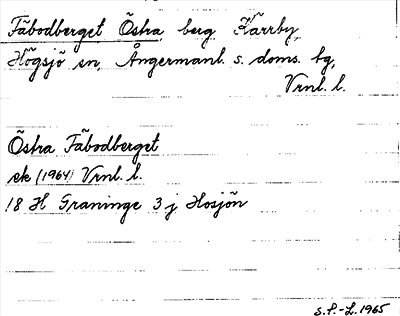 Fäbodberget Östra, berg Kärrby,
Högsjö sn, Ångermanl. s. doms. tg,
Vrnl. l.
Östra Fäbodberget
ek (1964) Vrnl. l.
18 H Graninge 3 j Hosjön
S.P.-L. 1965